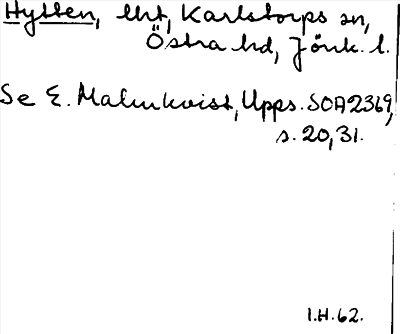 Hytten, lht, Karlstorps sn,
Östra hd, Jönk. l.
Se E. Malmkvist, Upps. SOA2369,
s. 20, 31.
I.H. 62.